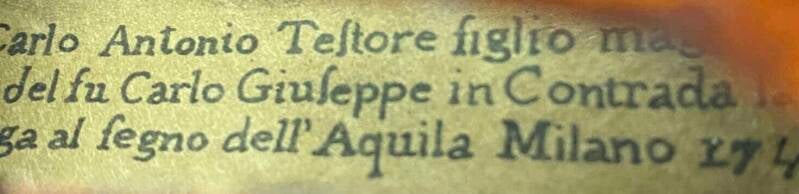 Carlo Antonio Teſtore figlio mag
del fu Carlo Giuſeppe in Contrada la
ga al ſegno dell'Aquila Milano 174